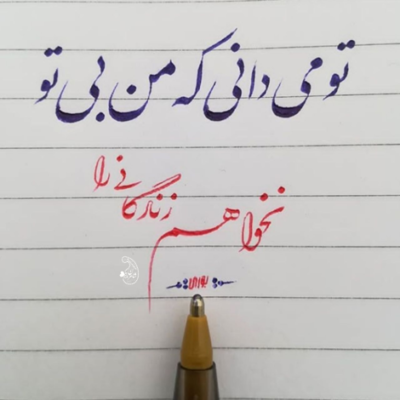 تو می دانی که من بی تو
نخواهم زندگانی را